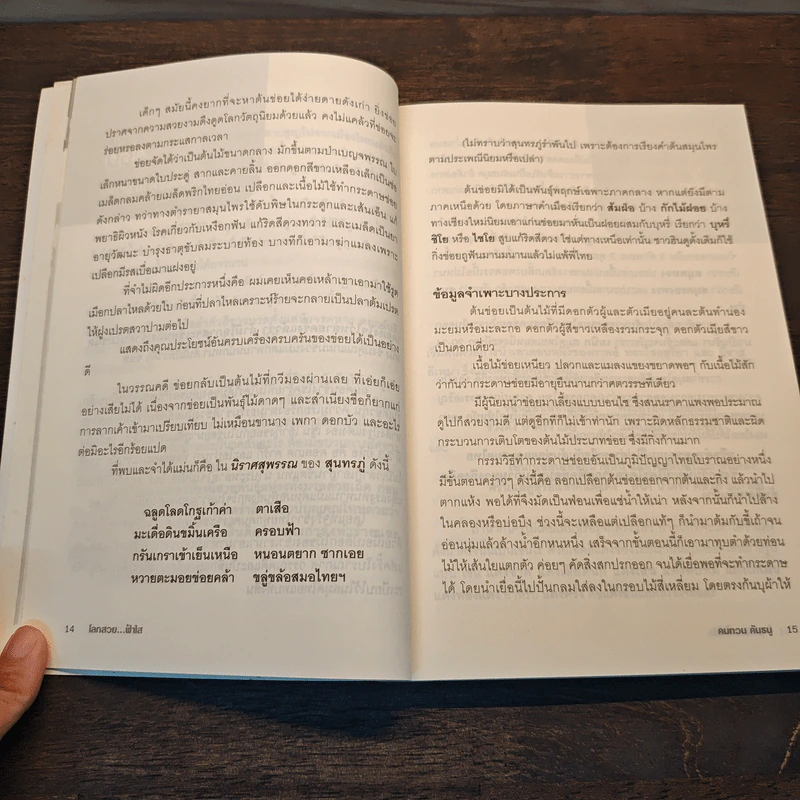 เด็กๆ สมัยนี้คงยากที่จะหาต้นข่อยได้ง่ายดายดังเก่า ยิ่งข่อย
ปราศจากความสวยงามดึงดูดโลกวัตถุนิยมด้วยแล้ว คงไม่แคล้วที่ข่อยจะ
ร่อยหรอลงตามกระแสกาลเวลา
ข่อยจัดได้ว่าเป็นต้นไม้ขนาดกลาง มักขึ้นตามป่าเบญจพรรณ ใบ
เล็กหนาขนาดใบประดู่ สากและคายลิ้น ออกดอกสีขาวเหลืองเล็กเป็นช่อ
เมล็ดกลมคล้ายเมล็ดพริกไทยอ่อน เปลือกและเนื้อไม้ใช้ทำกระดาษข่อย
ดังกล่าว ทว่าทางตำรายาสมุนไพรใช้ดับพิษในกระดูกและเส้นเอ็น แก้
พยาธิผิวหนัง โรคเกี่ยวกับเหงือกฟัน แก้ริดสีดวงทวาร และเมล็ดเป็นยา
อายุวัฒนะ บำรุงธาตุขับลมระบายท้อง บางทีก็เอามาฆ่าแมลงเพราะ
เปลือกมีรสเบื่อเมาแฝงอยู่
ที่จำไม่ผิดอีกประการหนึ่งคือ ผมเคยเห็นคอเหล้าเขาเอามาใช้รูด
เมือกปลาไหลด้วยใบ ก่อนที่ปลาไหลเคราะห์ร้ายจะกลายเป็นปลาต้มเปรต
ให้ฝูงเปรตสวาปามต่อไป
แสดงถึงคุณประโยชน์อันครบเครื่องครบครันของข่อยได้เป็นอย่าง
ดี
ในวรรณคดี ข่อยกลับเป็นต้นไม้ที่กวีมองผ่านเลย ที่เอ่ยก็เอ่ย
อย่างเสียไม่ได้ เนื่องจากข่อยเป็นพันธุ์ไม้ดาดๆ และสำเนียงชื่อก็ยากแก่
การลากเค้าเข้ามาเปรียบเทียบ ไม่เหมือนขานาง เพกา ดอกบัว และอะไร
ต่อมิอะไรอีกร้อยแปด
ที่พบและจำได้แม่นก็คือ ใน นิราศสุพรรณ ของ สุนทรภู่ ดังนี้
ฉลูดโลดโกฐเก้าค่า ตาเสือ
มะเดื่อดินขมิ้นเครือ ครอบฟ้า
กรันเกราเข้าเย็นเหนือ หนอนตยาก ซากเอย
หวายตะมอยข่อยคล้า ขลู่ขล้อสมอไทยฯ
14 โลกสวย...ฟ้าใส
(ไม่ทราบว่าสุนทรภู่รำพันไป เพราะต้องการเรียงคำต้นสมุนไพร
ตามประเพณีนิยมหรือเปล่า)
ต้นข่อยมิได้เป็นพันธุ์พฤกษ์เฉพาะภาคกลาง หากแต่ยังมีตาม
ภาคเหนือด้วย โดยภาษาคำเมืองเรียกว่า ส้มฝ่อ บ้าง กักไม้ฝอย บ้าง
ทางเชียงใหม่นิยมเอาแก่นข่อยมาหั่นเป็นฝอยผสมกับบุหรี่ เรียกว่า บุหรี่
ขิโย หรือ ไชโย สูบแก้ริดสีดวง ใช่แต่ทางเหนือเท่านั้น ชาวอินดูดั้งเดิมก็ใช้
กิ่งข่อยถูฟันมานมนานแล้วไม่แพ้พี่ไทย
ข้อมูลจำเพาะบางประการ
ต้นข่อยเป็นต้นไม้ที่มีดอกตัวผู้และตัวเมียอยู่คนละต้นทำนอง
มะยมหรือมะละกอ ดอกตัวผู้สีขาวเหลืองรวมกระจุก ดอกตัวเมียสีขาว
เป็นดอกเดี่ยว
เนื้อไม้ข่อยเหนียว ปลวกและแมลงแขยงขยาดพอๆ กับเนื้อไม้สัก
ว่ากันว่ากระดาษข่อยมีอายุยืนนานกว่าศตวรรษทีเดียว
มีผู้นิยมนำข่อยมาเลี้ยงแบบบอนไซ ซึ่งสนนราคาแพงพอประมาณ
ดูไปก็สวยงามดี แต่ดูอีกทีก็ไม่เข้าท่านัก เพราะผิดหลักธรรมชาติและผิด
กระบวนการเติบโตของต้นไม้ประเภทข่อย ซึ่งมีกิ่งก้านมาก
กรรมวิธีทำกระดาษข่อยอันเป็นภูมิปัญญาไทยโบราณอย่างหนึ่ง
มีขั้นตอนคร่าวๆ ดังนี้คือ ลอกเปลือกต้นข่อยออกจากต้นและกิ่ง แล้วนำไป
ตากแห้ง พอได้ที่จึงมัดเป็นฟ่อนเพื่อแช่น้ำให้เน่า หลังจากนั้นก็นำไปล้าง
ในคลองหรือบ่อบึง ช่วงนี้จะเหลือแต่เปลือกแท้ๆ ก็นำมาต้มกับขี้เถ้าจน
อ่อนนุ่มแล้วล้างน้ำอีกหนหนึ่ง เสร็จจากขั้นตอนนี้ก็เอามาทุบตำด้วยท่อน
ไม้ให้เส้นใยแตกตัว ค่อยๆ คัดสิ่งสกปรกออก จนได้เยื่อพอที่จะทำกระดาษ
ได้ โดยนำเยื่อนี้ไปปั้นกลมใส่ลงในกรอบไม้สี่เหลี่ยม โดยตรงก้นบุผ้าให้
คมทวน คันธนู 15